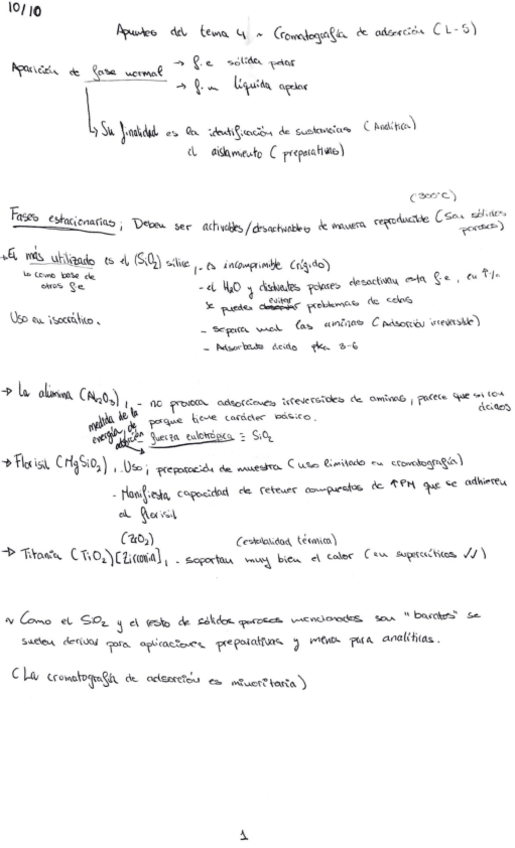 10/10
Apuntes del tema 4 ~ Cromatografía de adsorción (L-S)
Aparición de fase normal → f.e sólida polar
→ f.m líquida apolar
↳ Su finalidad es la identificación de sustancias (Analítica)
el aislamiento (preparativas)
(300ºC)
Fases estacionarias; Deben ser activables/desactivables de manera reproducible (Son sólidos porosos)
→ El más utilizado es el (SiO2) sílice, - es incomprimible (rígido)
↳ como base de otros f.e
- el H2O y disolventes polares desactivan esta f.e, en ↑%
se pueden evitar problemas de colas
Uso en isocrático.
- separa mal las aminas (Adsorción irreversible)
- Adsorbato ácido pka 3-6
→ La alúmina (Al2O3), - no provoca adsorciones irreversibles de aminas, parece que si con ácidos
porque tiene carácter básico.
medida de la energía de adsorción
- fuerza eulotrópica ≡ SiO2
→ Florisil (MgSiO2), Uso; preparación de muestra (uso limitado en cromatografía)
- Manifiesta capacidad de retener compuestos de ↑PM que se adhieren
al florisil
(ZrO2) (estabilidad térmica)
→ Titania (TiO2) [Zirconia], - soportan muy bien el calor (en supercríticos ✓✓)
~ Como el SiO2 y el resto de sólidos porosos mencionados son "baratos" se
suelen derivar para aplicaciones preparativas y menos para analíticas.
(La cromatografía de adsorción es minoritaria)
1